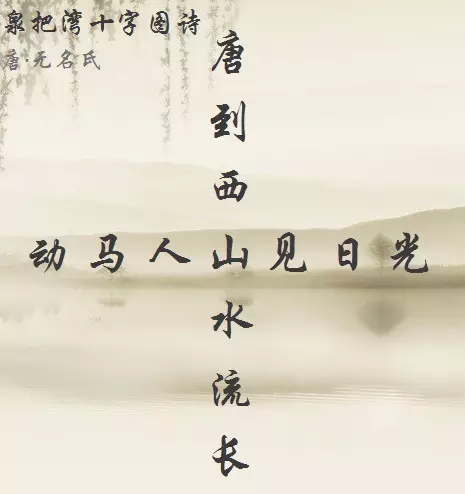 泉把湾十字图诗
唐·无名氏
唐
到
西
动马人山见日光
水
流
长